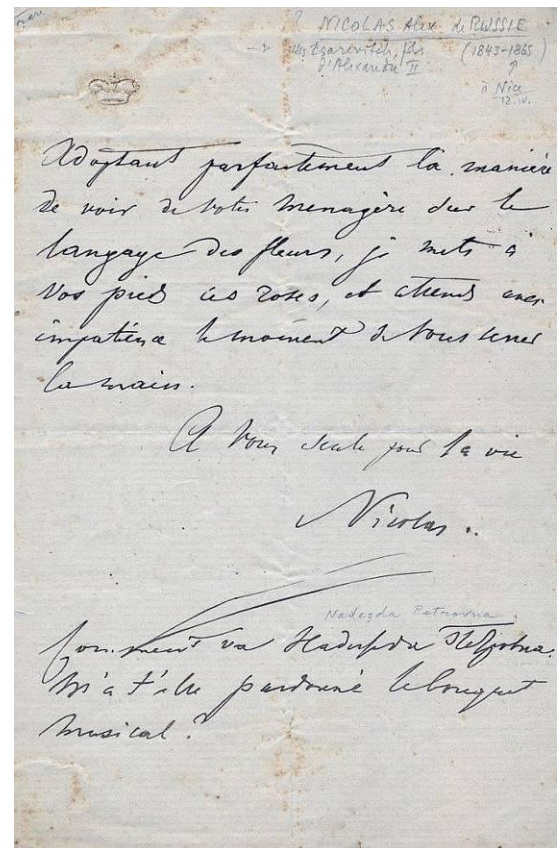 ? NICOLAS Alex de RUSSIE
Tzarevitch, fils (1843-1865)
d'Alexandre II
à Nice
12.IV.
Adoptant parfaitement la manière
de voir de votre menagère sur le
langage des fleurs, je mets à
vos pieds ces roses, et attends avec
impatience le moment de vous serrer
la main.
A vous seule pour la vie
Nicolas.
Nadezda Petrovna
Comment va Надежда Петровна.
M'a t'elle pardonné le bouquet
musical?